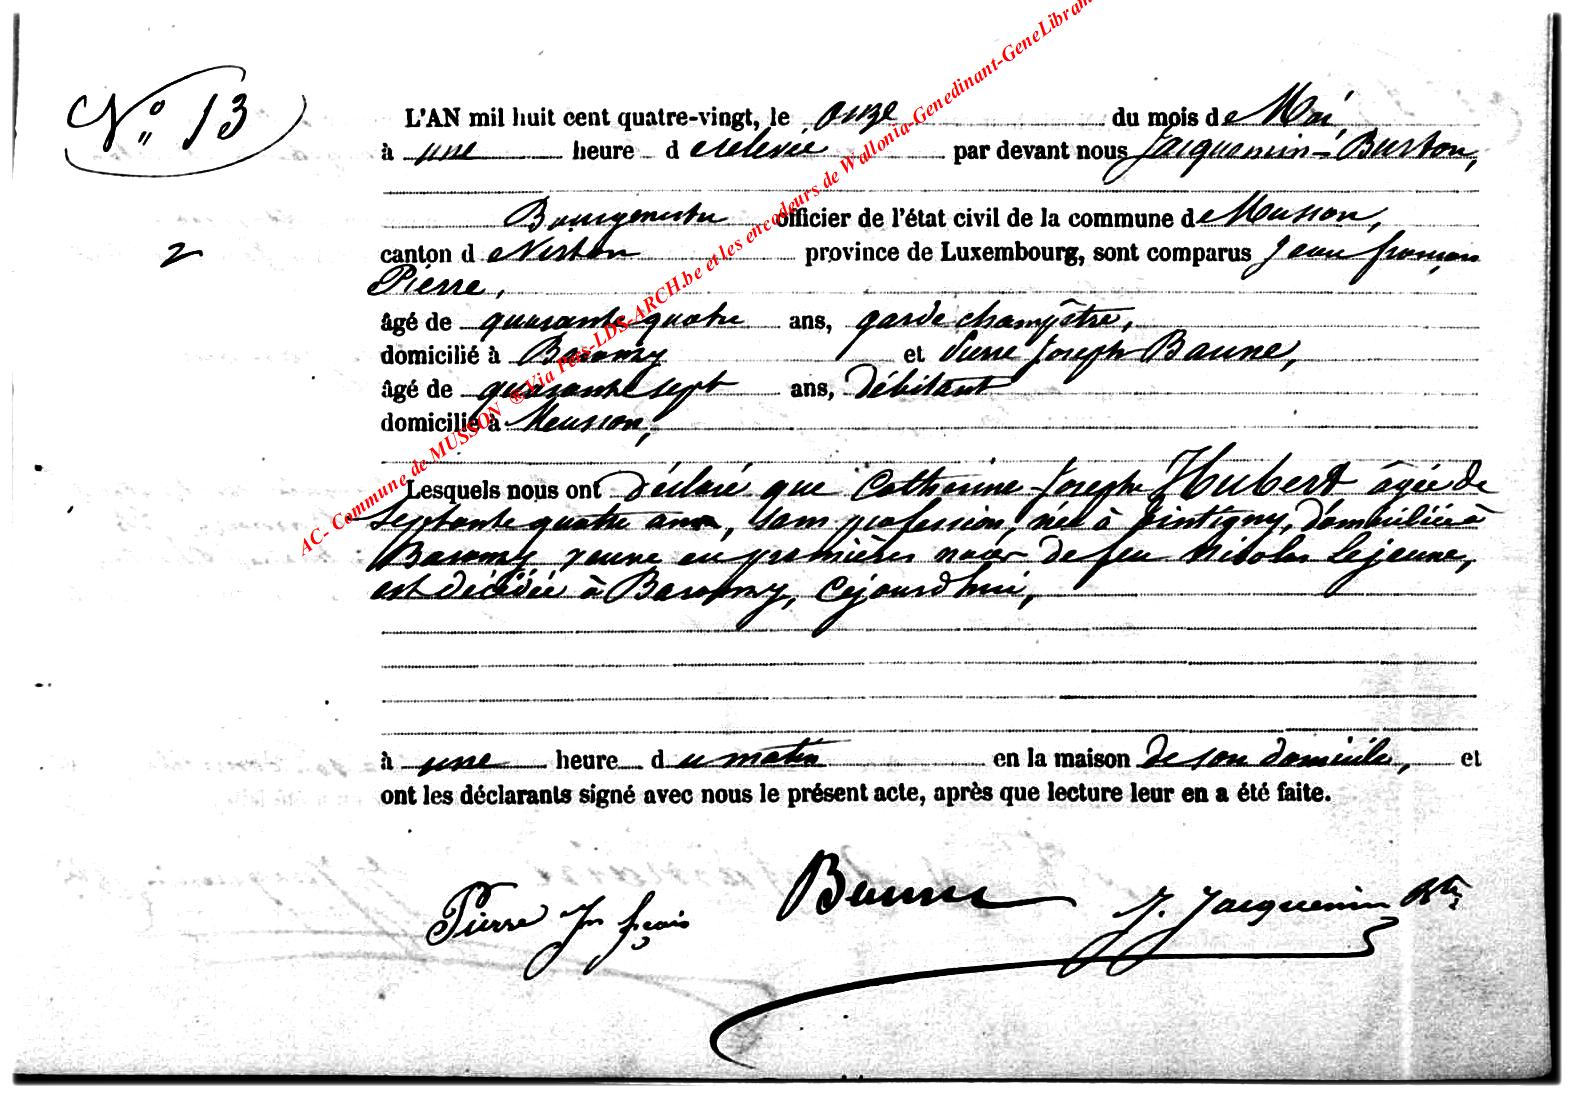 N° 13
L'AN mil huit cent quatre-vingt, le onze du mois de Mai
à une heure de relevée par devant nous Jacquemin-Burton,
Bourgmestre officier de l'état civil de la commune de Musson,
2
canton de Virton province de Luxembourg, sont comparus Jean françois
Pierre,
âgé de quarante quatre ans, garde champêtre,
domicilié à Baranzy et Pierre Joseph Baune,
âgé de quarante sept ans, débitant
domicilié à Musson,
Lesquels nous ont déclaré que Catherine-Joseph Hubert âgée de
septante quatre ans, sans profession, née à Tintigny, domiciliée à
Baranzy veuve en premières noces de feu Nicolas Lejeune,
est décédée à Baranzy, cejourd'hui,
à une heure du matin en la maison de son domicile, et
ont les déclarants signé avec nous le présent acte, après que lecture leur en a été faite.
Pierre Jn fçois Baune J. Jacquemin Btn
AC- Commune de MUSSON ® Via Pers-LDS-ARCH.be et les encodeurs de Wallonia-Genedinant-GeneLibram